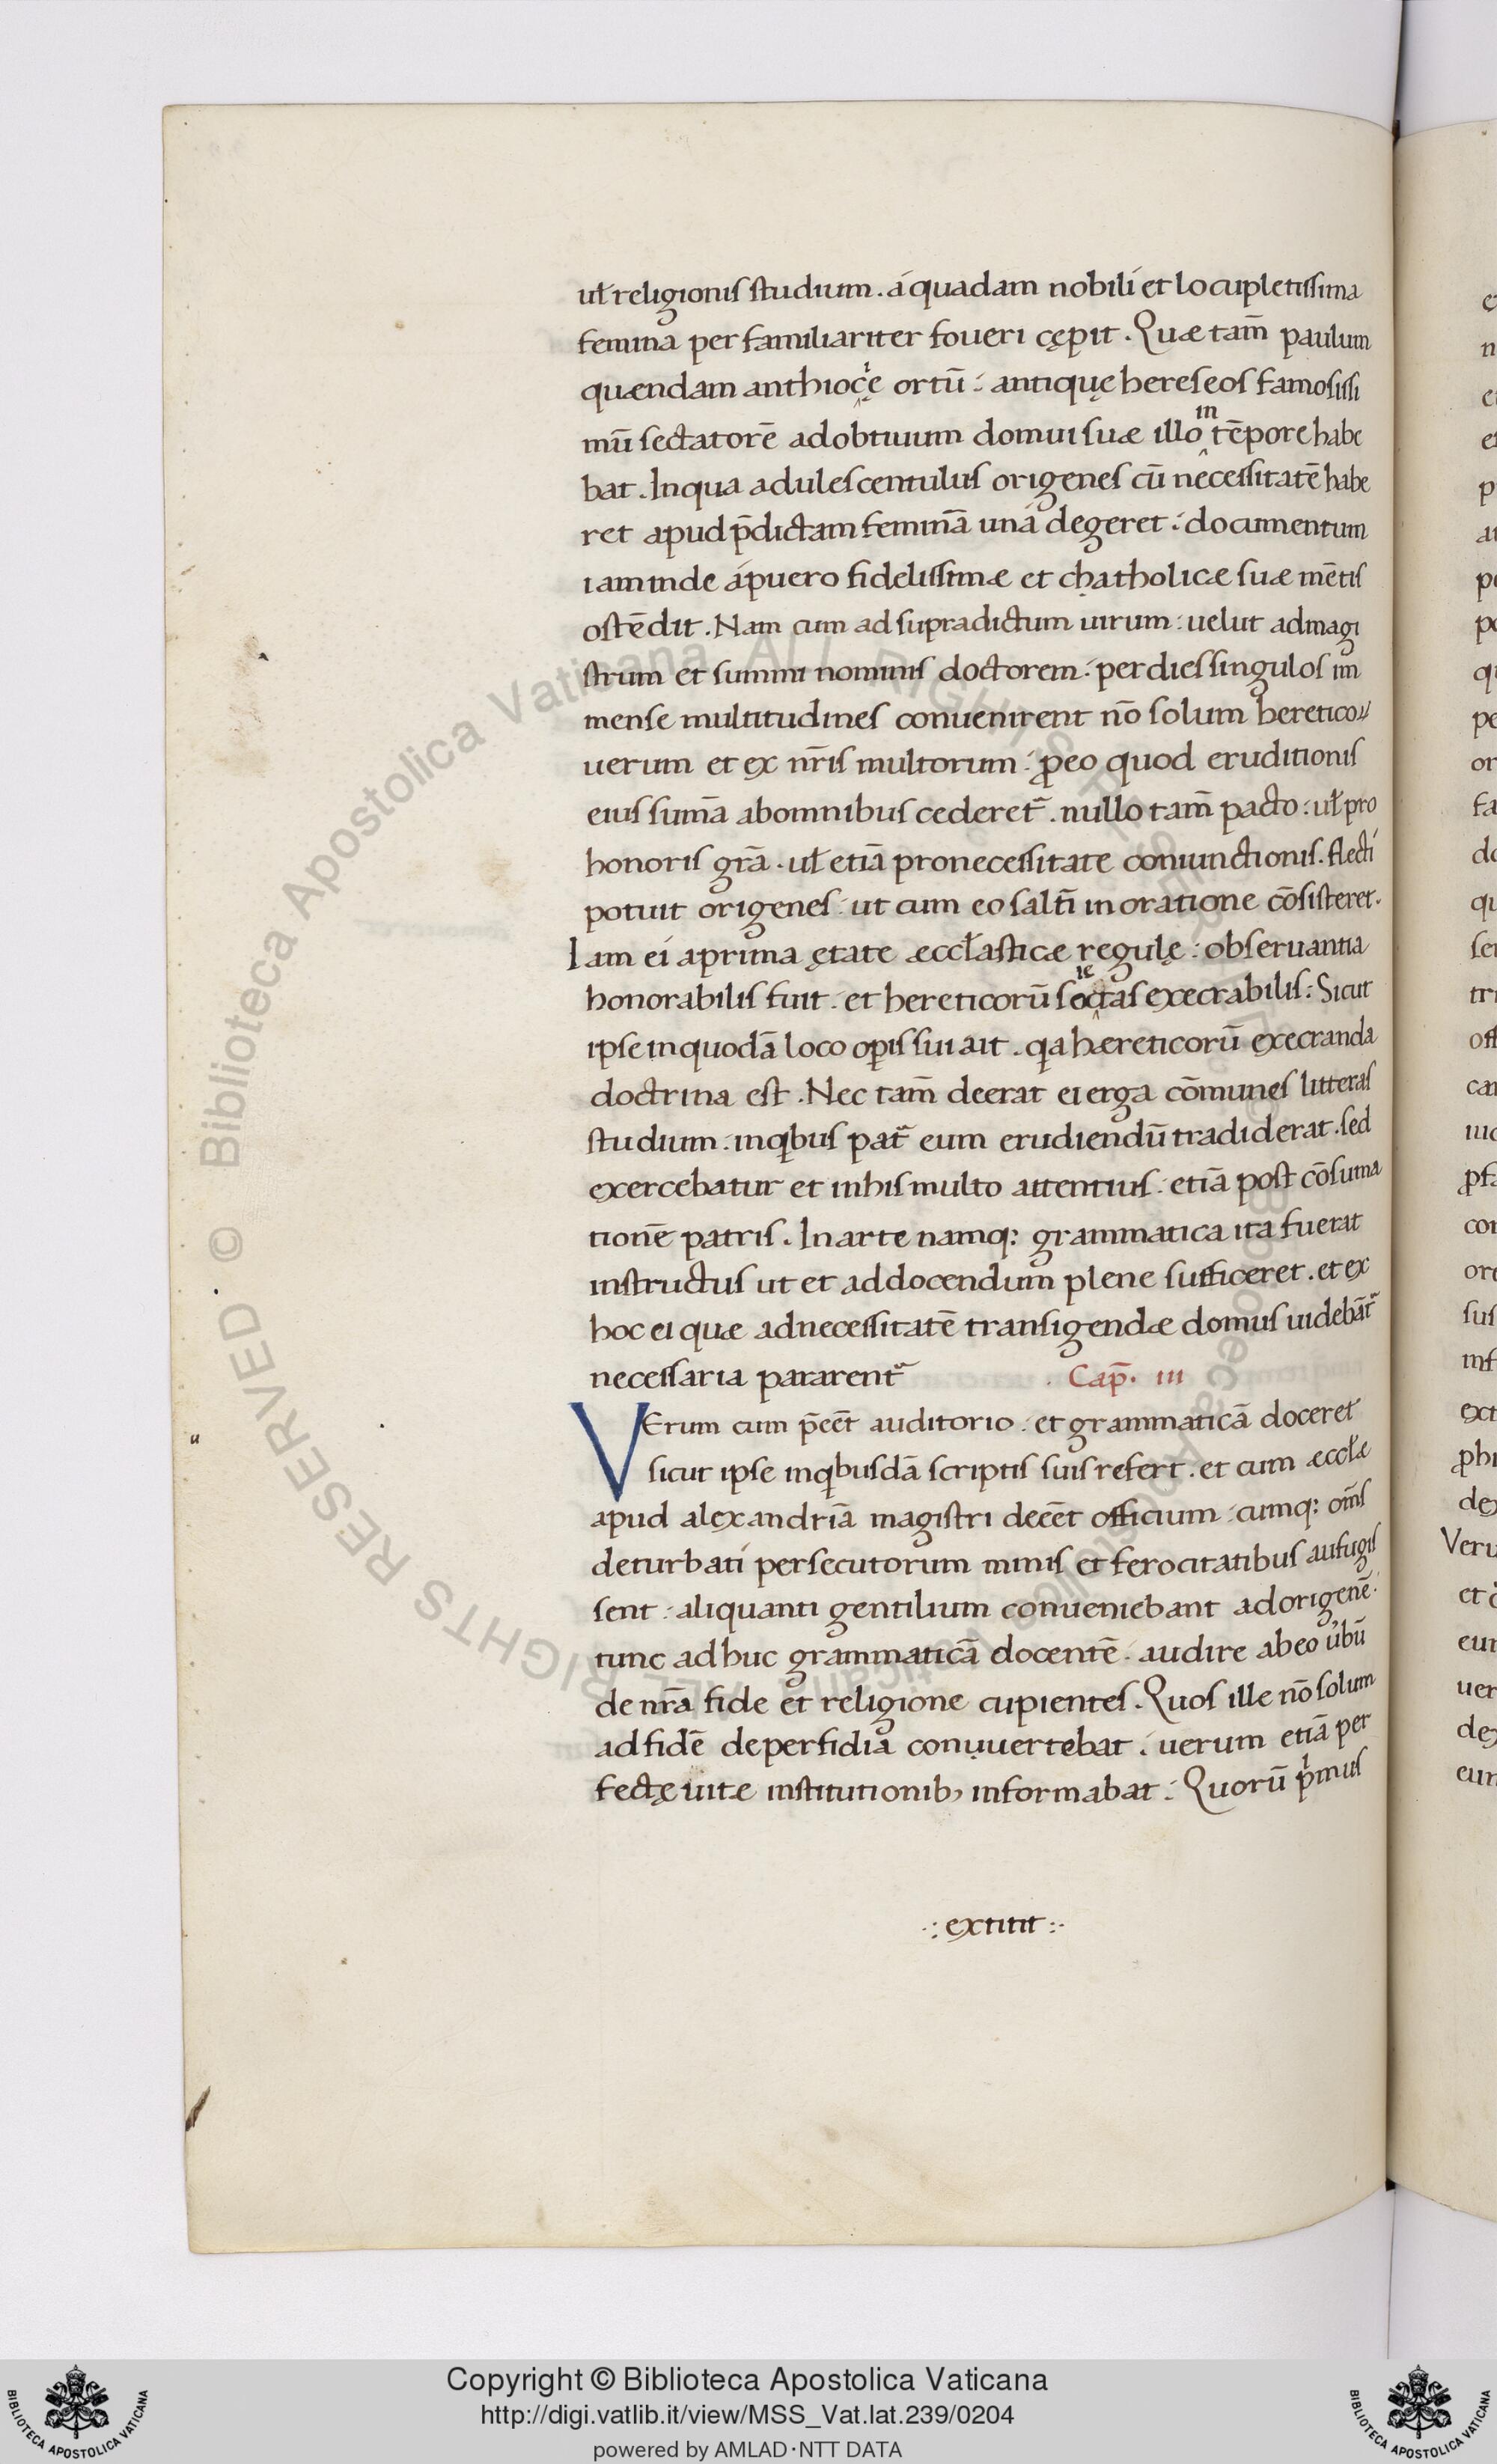 ul̄ religionis studium. á quadam nobilí et locupletissima
femina per familiariter foueri cępit. Quæ tam̄ paulum
quendam anthiocię ortū: antiquę hereseos famosissi
mū sectatorē ad obtuium domui suæ illo in tēpore habe
bat. In qua adulescentulus origenes cū necessitatē habe
ret apud p̄dictam feminā uná degeret: documentum
iam inde á puero fidelissimæ et chatholicæ suæ mētis
ostēdit. Nam cum ad supradictum uirum: uelut ad magi
strum et summi nominis doctorem: per dies singulos im
mense multitudines conuenirent nō solum hereticoꝝ
uerum et ex nr̄is multorum: ꝓ eo quod eruditionis
eius sum̄a ab omnibus cederet᷑. nullo tam̄ pacto: ul̄ pro
honoris grā. ul̄ etiā pro necessitate coniunctionis. flectí
potuit origenes: ut cum eo saltī in oratione cōsisteret.
Iam eí a prima ętate æccl̄asticæ regulę: obseruantia
honorabilis fuit: et hereticorū soctas ie execrabilis: Sicut
ipse in quodā loco oꝑis sui ait. qa hæreticorū execranda
doctrina est. Nec tam̄ deerat ei erga cōmunes litteras
studium: in qbus pat᷑ eum erudiendū tradiderat. sed
exercebatur et in his multo attentius: etiā post cōsuma
tionē patris. In arte namq: grammatica ita fuerat
instructus ut et ad docendum plene sufficeret. et ex
hoc ei quæ ad necessitatē transigendæ domus uidebāt᷑
necessaria pararent᷑ Cap̄. III
VErum cum p̄eēt auditorio: et grammaticā doceret
sicut ipse in qbusdā scriptis suis refert. et cum æccl̄æ
apud alexandriā magistri deeēt officium: cumq: om̄s
deturbatí persecutorum minis et ferocitatibus aufugis
sent: aliquanti gentilium conueniebant ad origenē:
tunc adhuc grammaticā docentē: audire ab eo u̓bū
de nr̄a fide et religione cupientes. Quos ille nō solum
ad fidē de perfidia conuuertebat: uerum etiā per
fectę uitæ institutionib, informabat: Quorū pⁱmus
.: extitit :.
Copyright © Biblioteca Apostolica Vaticana
http://digi.vatlib.it/view/MSS_Vat.lat.239/0204
powered by AMLAD·NTT DATA